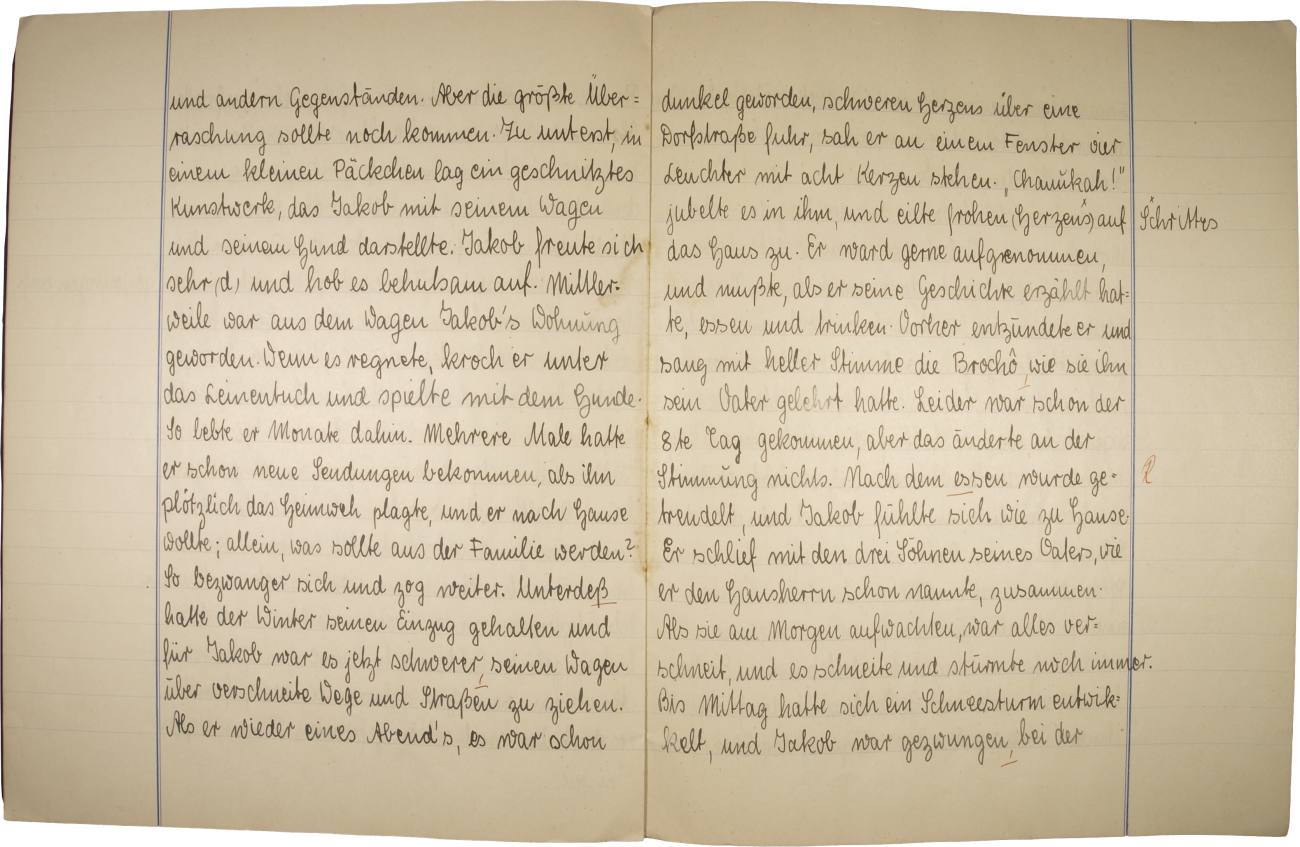 und andern Gegenständen. Aber die größte Über=
raschung sollte noch kommen. Zu unterst, in
einem kleinen Päckchen lag ein geschnitztes
Kunstwerk, das Jakob mit seinem Wagen
und seinem Hund darstellte. Jakob freute sich
sehr (d) und hob es behutsam auf. Mittler-
weile war aus dem Wagen Jakob's Wohnung
geworden. Wenn es regnete, kroch er unter
das Leinentuch und spielte mit dem Hunde.
So lebte er Monate dahin. Mehrere Male hatte
er schon neue Sendungen bekommen, als ihn
plötzlich das Heimweh plagte, und er nach Hause
wollte; allein, was sollte aus der Familie werden?
So bezwang er sich und zog weiter. Unterdeß
hatte der Winter seinen Einzug gehalten und
für Jakob war es jetzt schwerer, seinen Wagen
über verschneite Wege und Straßen zu ziehen.
Als er wieder eines Abend's, es war schon
dunkel geworden, schweren Herzens über eine
Dorfstraße fuhr, sah er an einem Fenster vier
Leuchter mit acht Kerzen stehen. „Chanukah!"
jubelte es in ihm, und eilte frohen (Herzens) auf Schrittes
das Haus zu. Er ward gerne aufgenommen,
und mußte, als er seine Geschichte erzählt hat=
te, essen und trinken. Vorher entzündete er und
sang mit heller Stimme die Brochô, wie sie ihn
sein Vater gelehrt hatte. Leider war schon der
8te Tag gekommen, aber das änderte an der
Stimmung nichts. Nach dem essen wurde ge-
trendelt, und Jakob fühlte sich wie zu Hause.
Er schlief mit den drei Söhnen seines Vaters, wie
er den Hausherrn schon nannte, zusammen.
Als sie am Morgen aufwachten, war alles ver=
schneit, und es schneite und stürmte noch immer.
Bis Mittag hatte sich ein Schneesturm entwik=
kelt, und Jakob war gezwungen, bei der